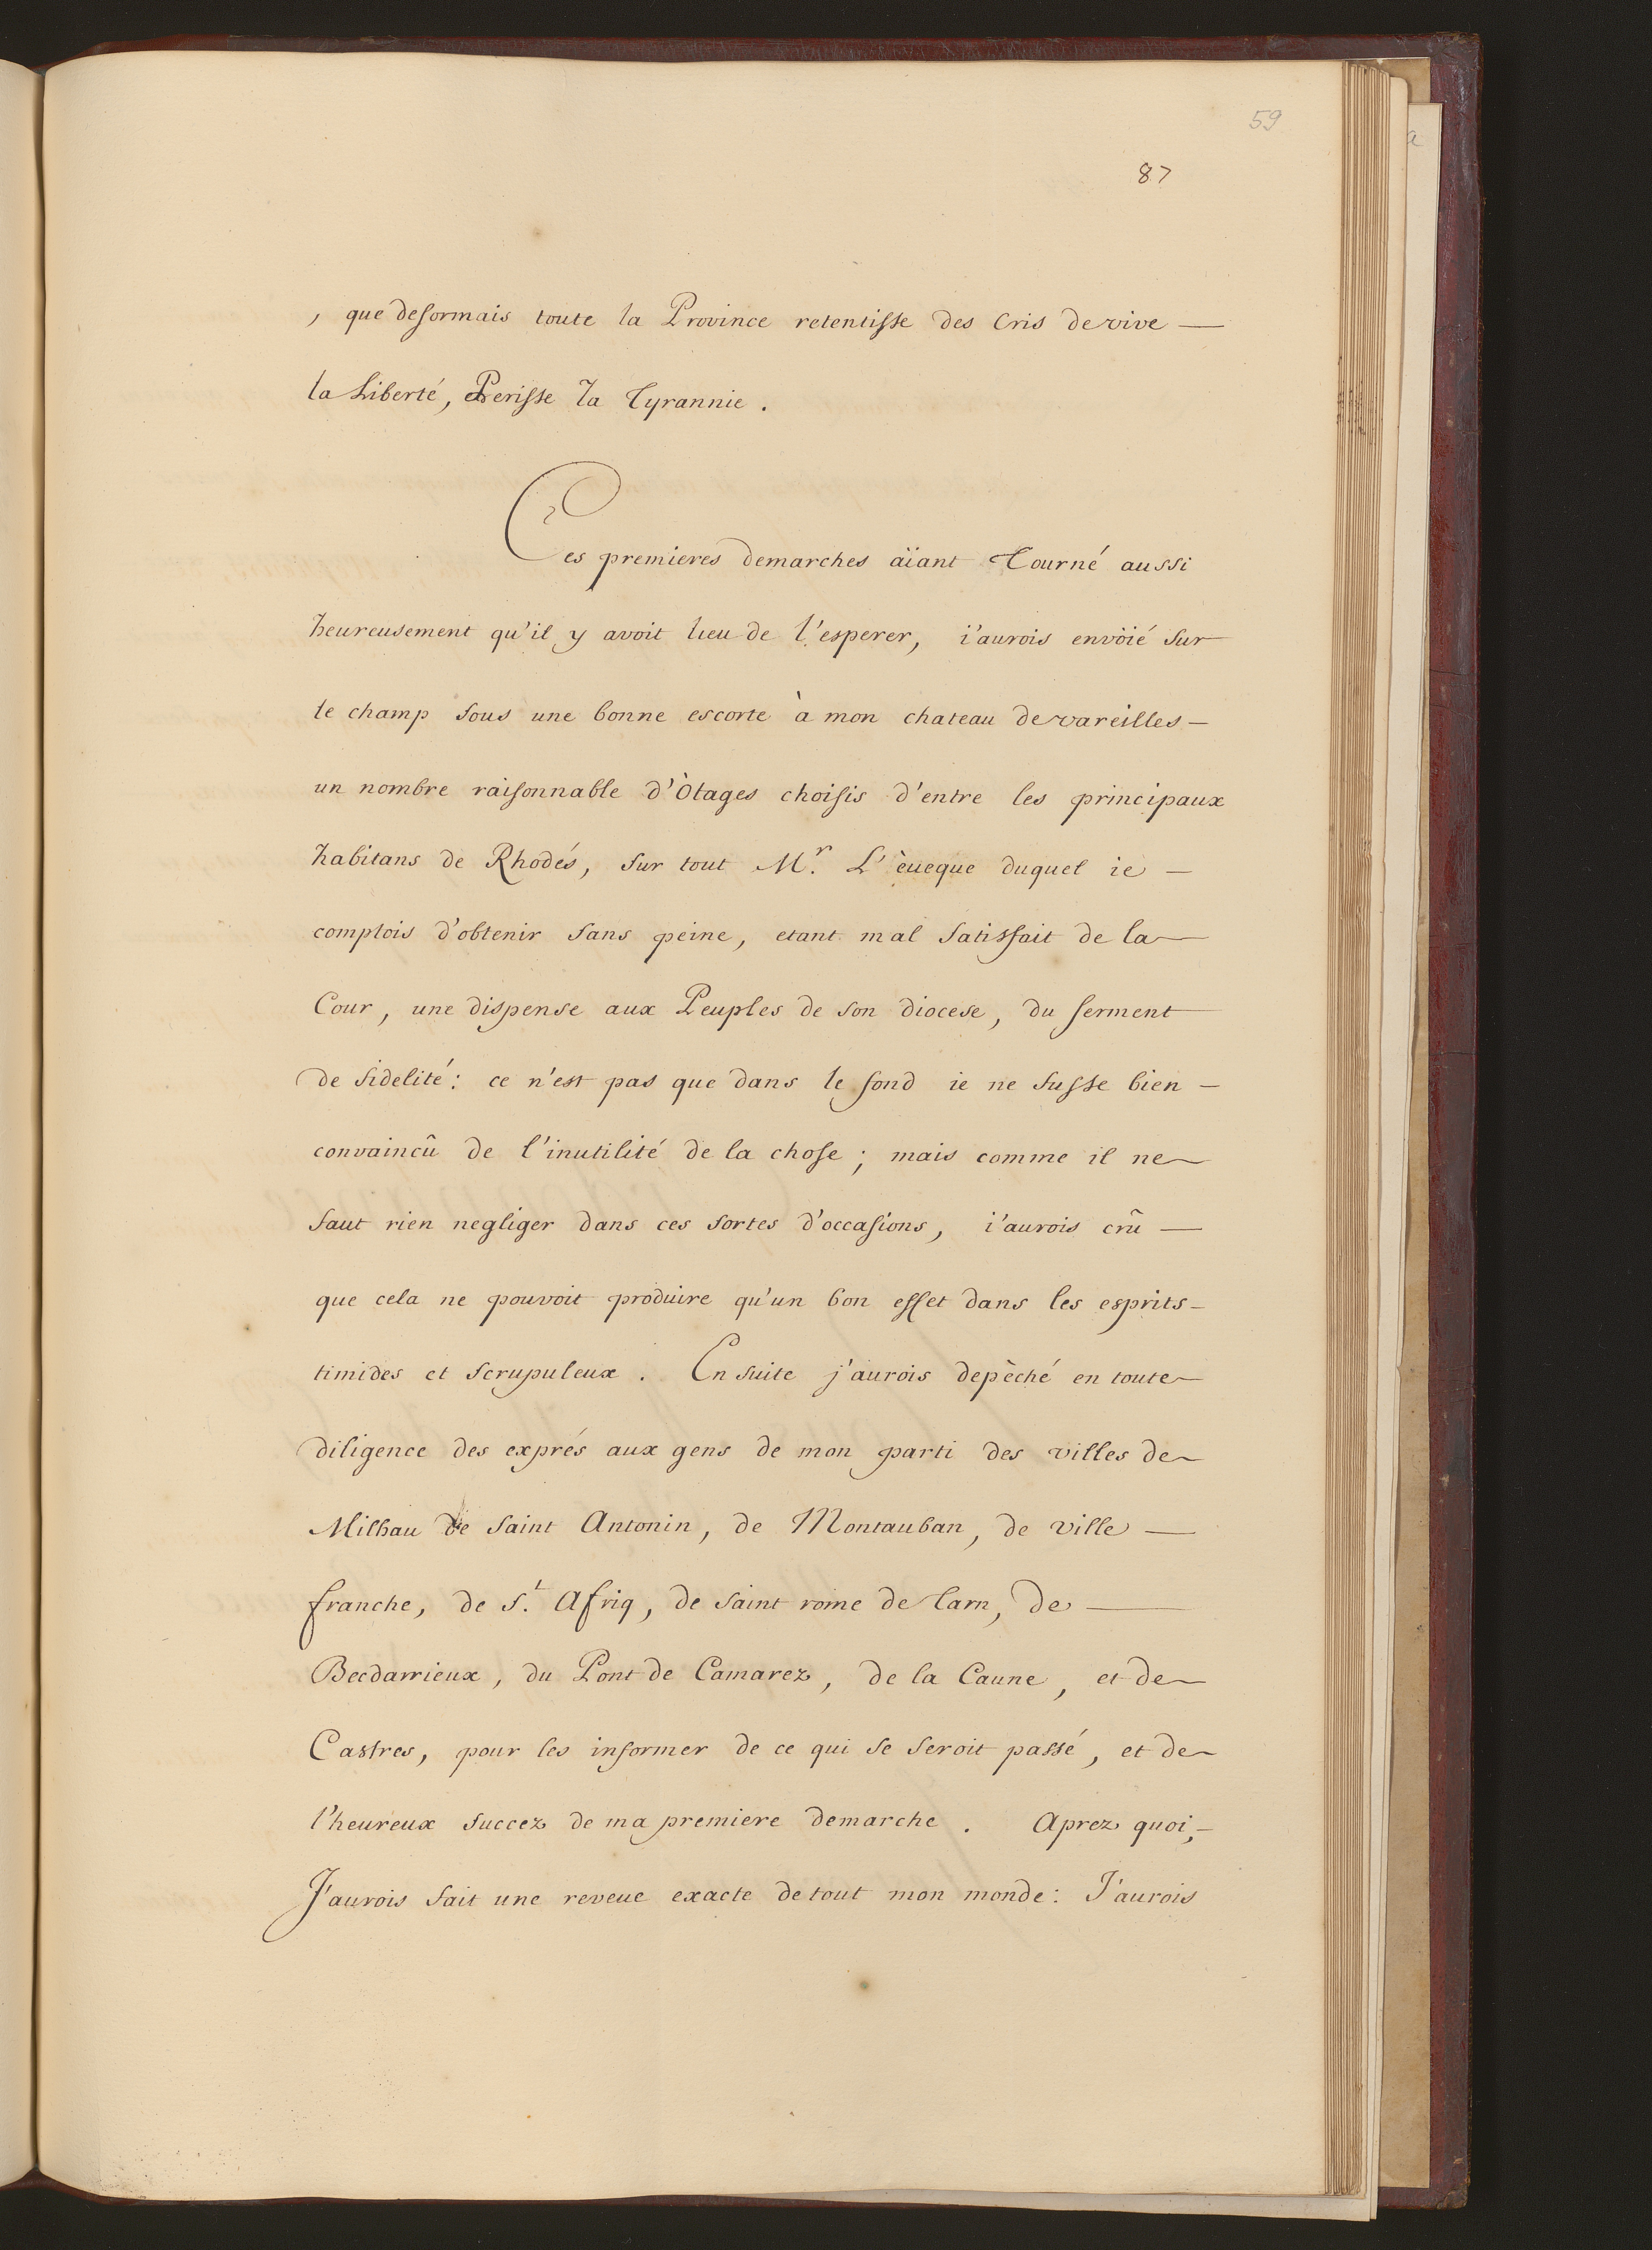 59
87
, que desormais toute la Province retentisse des Cris de vive —
la Liberté, Perisse la Tyrannie .
Ces premieres demarches aïant Tourné aussi
heureusement qu'il y avoit lieu de l'esperer, i'aurois envöié sur
le champ sous une bonne escorte à mon chateau de vareilles —
un nombre raisonnable d'Òtages choisis d'entre les principaux
habitans de Rhodés, sur tout Mr. L'èueque duquel ie —
comptois d'obtenir sans peine, etant mal satisfait de la —
Cour, une dispense aux Peuples de son diocese, du serment
de fidelité : ce n'est pas que dans le fond ie ne fusse bien —
convaincû de l'inutilité de la chose ; mais comme il ne
faut rien negliger dans ces sortes d'occasions, i'aurois crû —
que cela ne pouvoit produire qu'un bon effet dans les esprits —
timides et scrupuleux . En suite j'aurois depêché en toute
diligence des exprés aux gens de mon parti des villes de
Milhau de saint Antonin, de Montauban, de ville —
franche, de St. Afriq, de saint rome de Tarn, de —
Becdarrieux, du Pont de Camarez, de la Caune, et de
Castres, pour les informer de ce qui se seroit passé, et de
l'heureux succez de ma premiere demarche . Aprez quoi, —
J'aurois fait une reveue exacte de tout mon monde : J'aurois